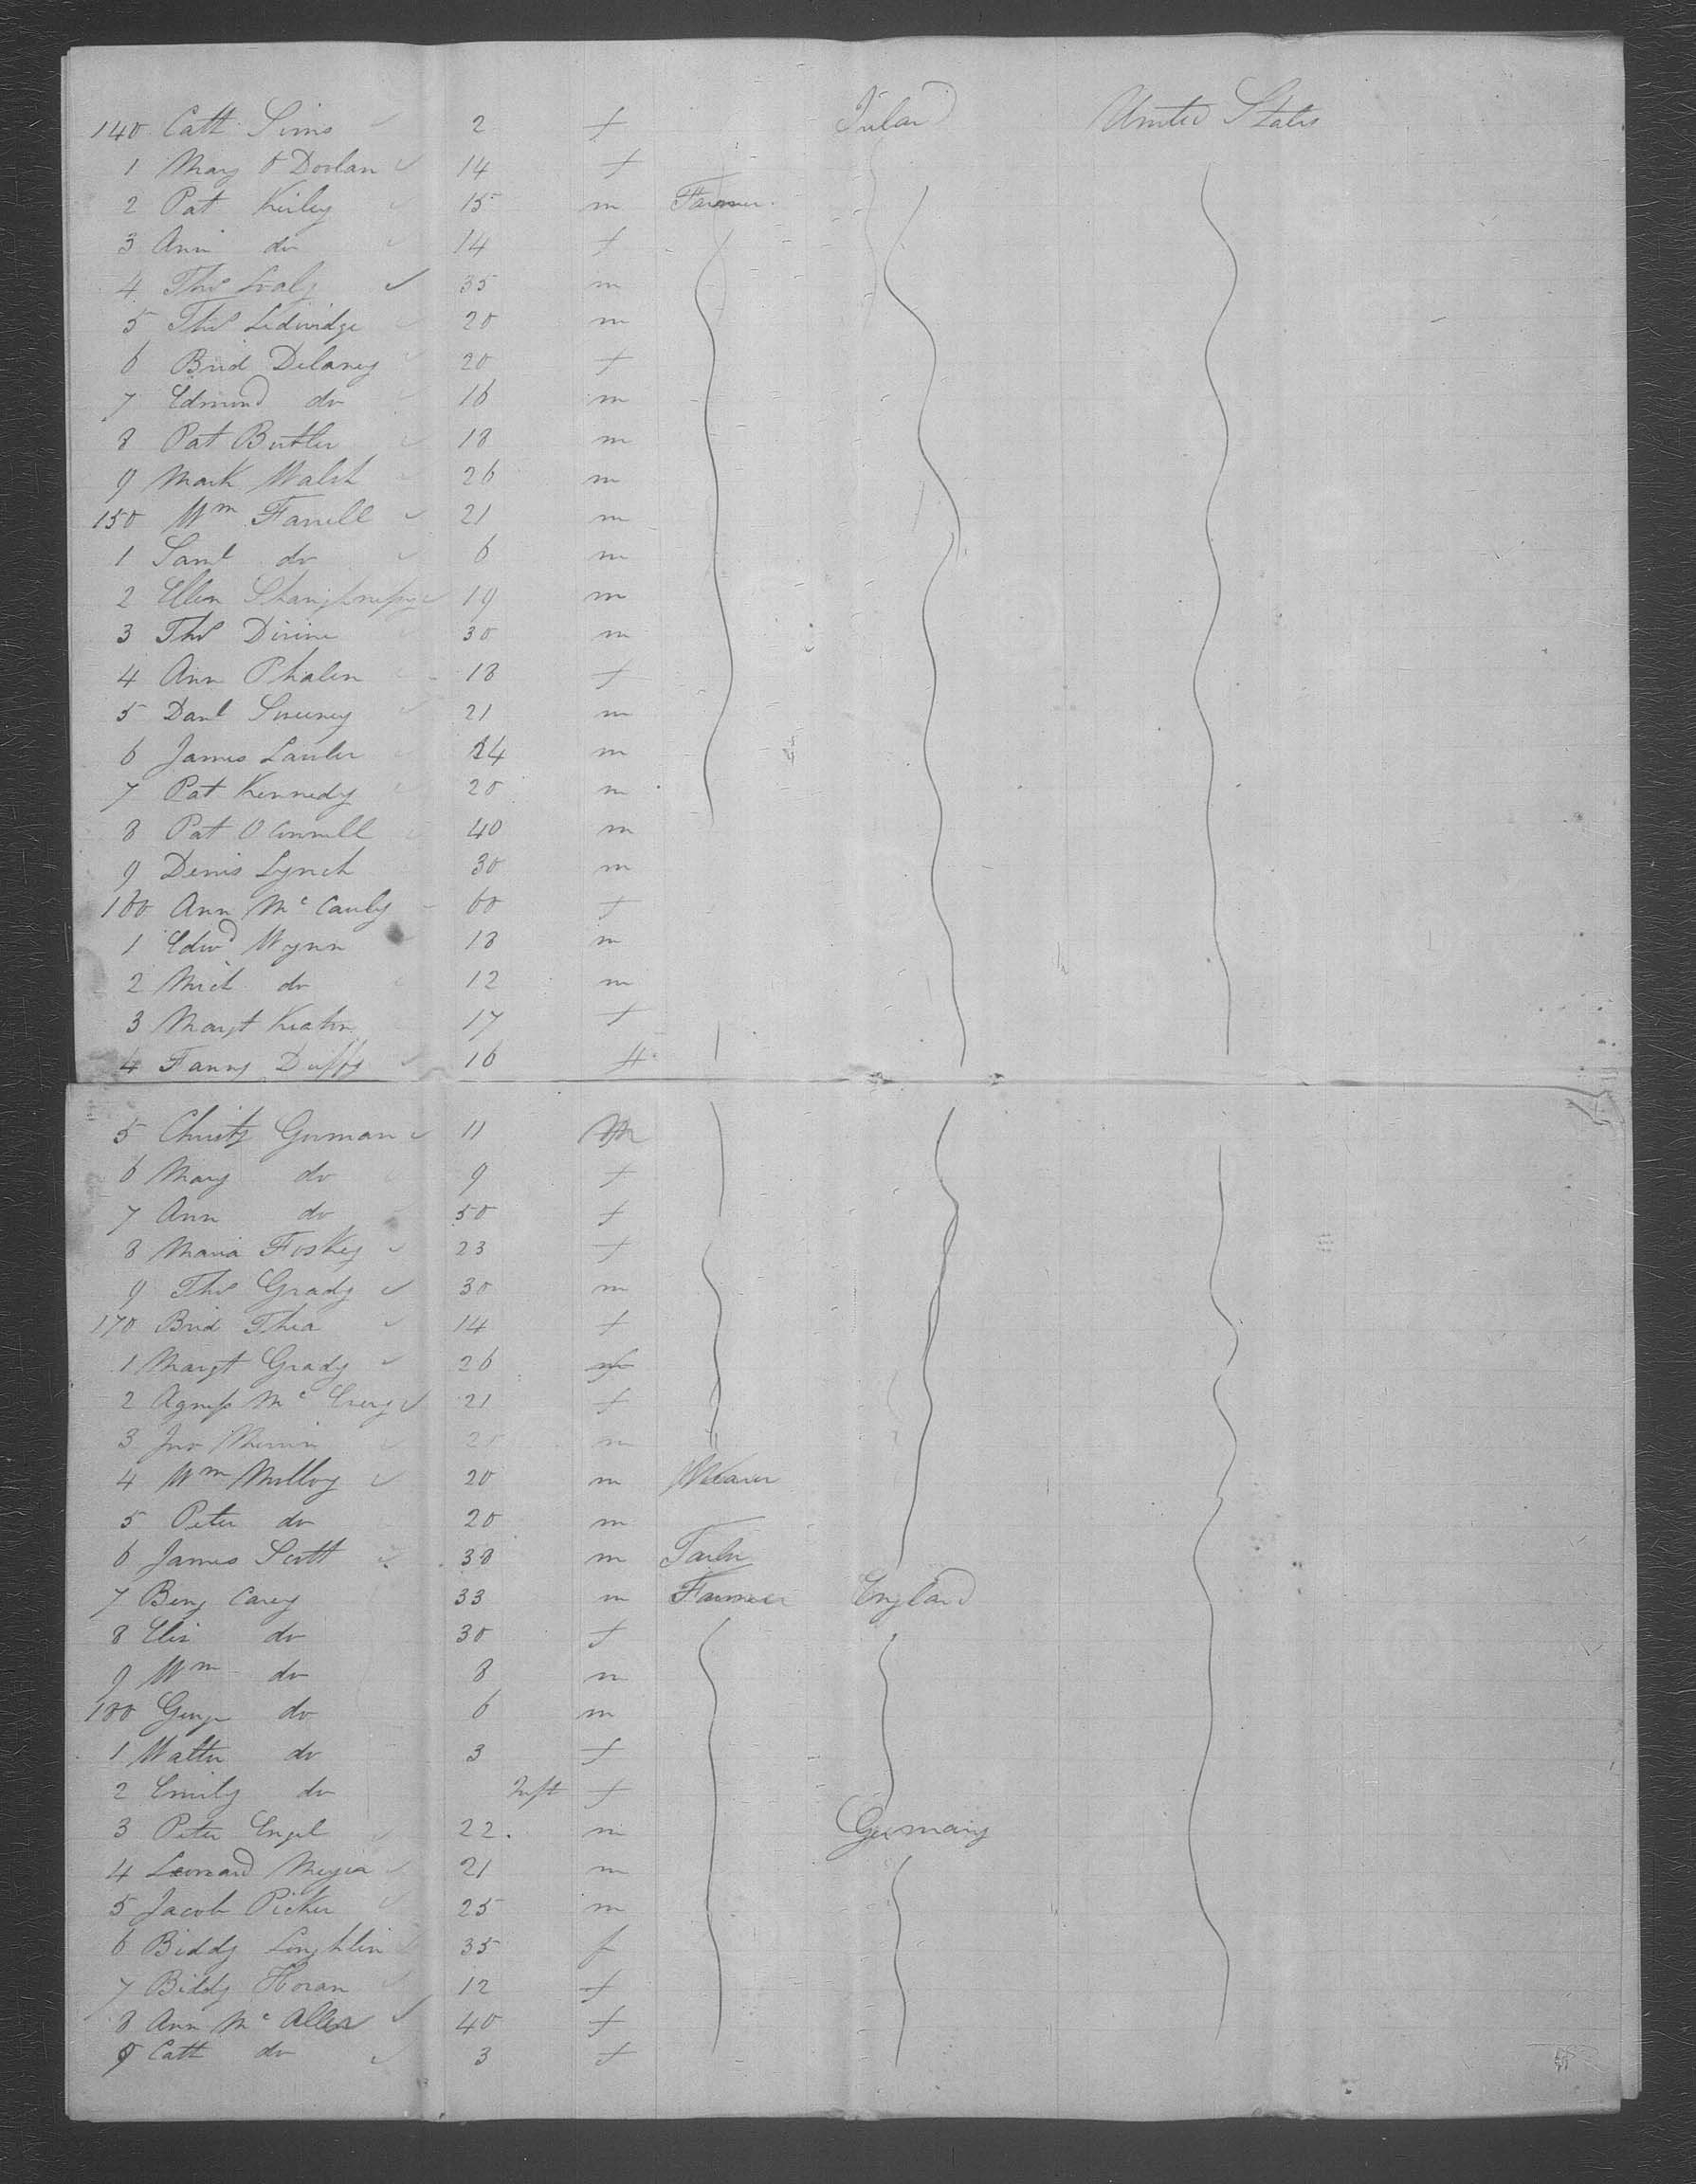 140 Cath Sims 2 f Ireland United States
1 Mary O Doolan 14 f
2 Pat Kirley 15 m Farmer
3 Ann do 14 f
4 Thos 35 m
5 Thos Ledwidge 20 m
6 Brid Delaney 20 f
7 Edmond do 16 m
8 Pat Butler 18 m
9 Mark Walsh 26 m
150 Wm Farrell 21 m
1 Saml do 6 m
2 Ellen Shaughnessy 19 m
3 Thos Divine 30 m
4 Ann Phalen 18 f
5 Danl Sweeney 21 m
6 James Lawler 24 m
7 Pat Kennedy 20 m
8 Pat O Connell 40 m
9 Denis Lynch 30 m
160 Ann Mc Cauly 60 f
1 Edwd Wynn 18 m
2 Mich do 12 m
3 Margt Keaton 17 f
4 Fanny Duffy 16 f
5 Christy Gorman 11 m
6 Mary do 9 f
7 Ann do 50 f
8 Maria Foskey 23 f
9 Thos Grady 30 m
170 Brid Shea 14 f
1 Margt Grady 26 f
2 Agness Mc Creery 21 f
3 Jno 20 m
4 Wm Mulloy 20 m Weaver
5 Peter do 20 m
6 James Scott 38 m Tailor
7 Benj Carey 33 m Farmer England
8 Eliz do 30 f
9 Wm do 8 m
180 George do 6 m
1 Walter do 3 f
2 Emily do Inft f
3 Peter Engel 22 m Germany
4 Leonard Meyer 21 m
5 Jacob Picker 25 m
6 Biddy Loughlin 35 f
7 Biddy Horan 12 f
8 Ann Mc Allen 40 f
9 Cath do 3 f